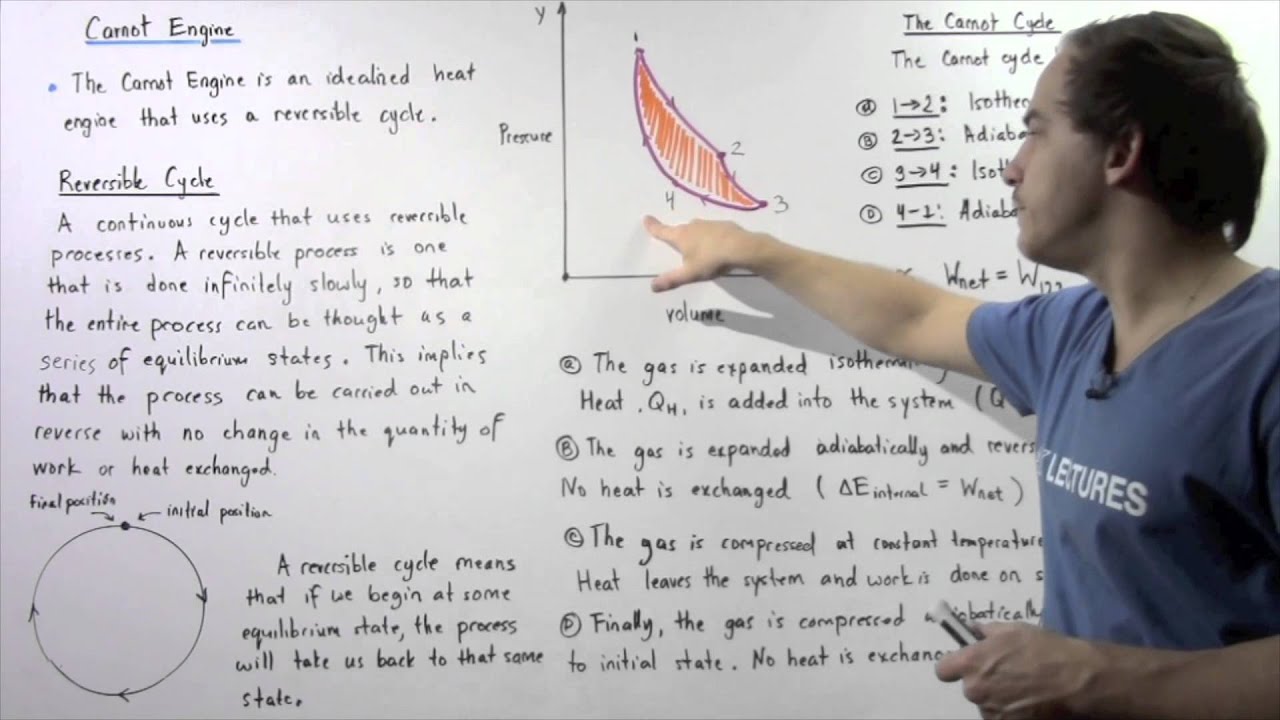 Carnot Engine
• The Carnot Engine is an idealized heat
engine that uses a reversible cycle.
Reversible Cycle
A continuous cycle that uses reversible
processes. A reversible process is one
that is done infinitely slowly, so that
the entire process can be thought as a
series of equilibrium states. This implies
that the process can be carried out in
reverse with no change in the quantity of
work or heat exchanged.
final position
initial position
A reversible cycle means
that if we begin at some
equilibrium state, the process
will take us back to that same
state.
y
Pressure
1
2
3
4
volume
The Carnot Cycle
The Carnot cycle
Ⓐ 1→2: Isothe
Ⓑ 2→3: Adiaba
Ⓒ 3→4: Isot
Ⓓ 4-1: Adiaba
Wnet = W123
ⓐ The gas is expanded isothermally
Heat, QH, is added into the system (Q
Ⓑ The gas is expanded adiabatically and revers
No heat is exchanged (ΔEinternal = Wnet)
Ⓒ The gas is compressed at constant temperature
Heat leaves the system and work is done on s
Ⓓ Finally, the gas is compressed adiabatically
to initial state. No heat is exchan
LECTURES